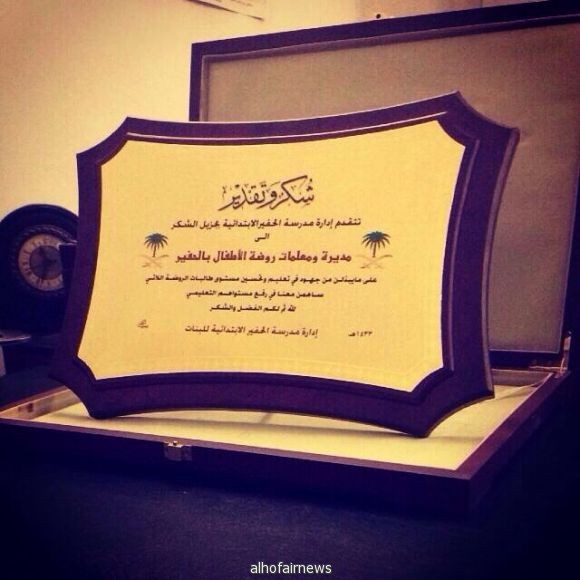 شكر وتقدير
تتقدم إدارة مدرسة الحفير الابتدائية بجزيل الشكر
الى
مديرة ومعلمات روضة الأطفال بالحفير
على مابذلن من جهود في تعليم وتحسين مستوى طالبات الروضة اللاتي
ساهمن معنا في رفع مستواهم التعليمي
لله ثم لكم الفضل والشكر
١٤٣٣هـ
إدارة مدرسة الحفير الابتدائية للبنات
alhofairnews